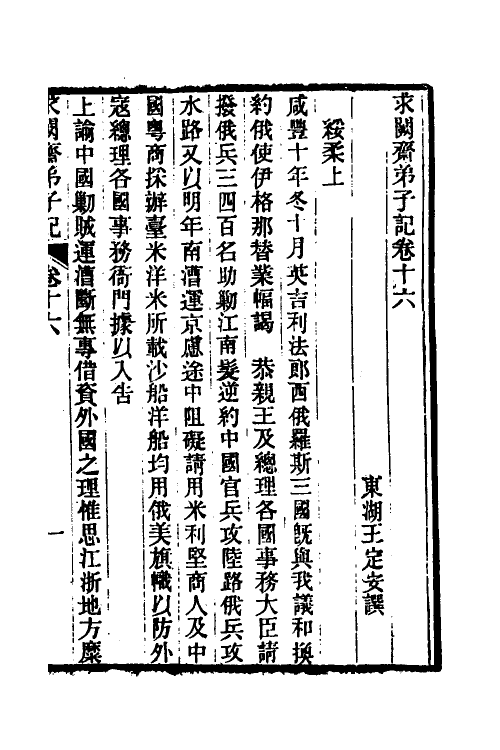 求闕齋弟子記卷十六
東湖王定安譔
綏柔上
咸豐十年冬十月英吉利法郎西俄羅斯三國旣與我議和換
約俄使伊格那替業幅謁　恭親王及總理各國事務大臣請
撥俄兵三四百名助勦江南髮逆約中國官兵攻陸路俄兵攻
水路又以明年南漕運京慮途中阻礙請用米利堅商人及中
國粵商採辦臺米洋米所載沙船洋船均用俄美旗幟以防外
寇總理各國事務衙門據以入告
上諭中國勦賊運漕斷無專借資外國之理惟思江浙地方糜
求闕齋弟子記
卷十六
一